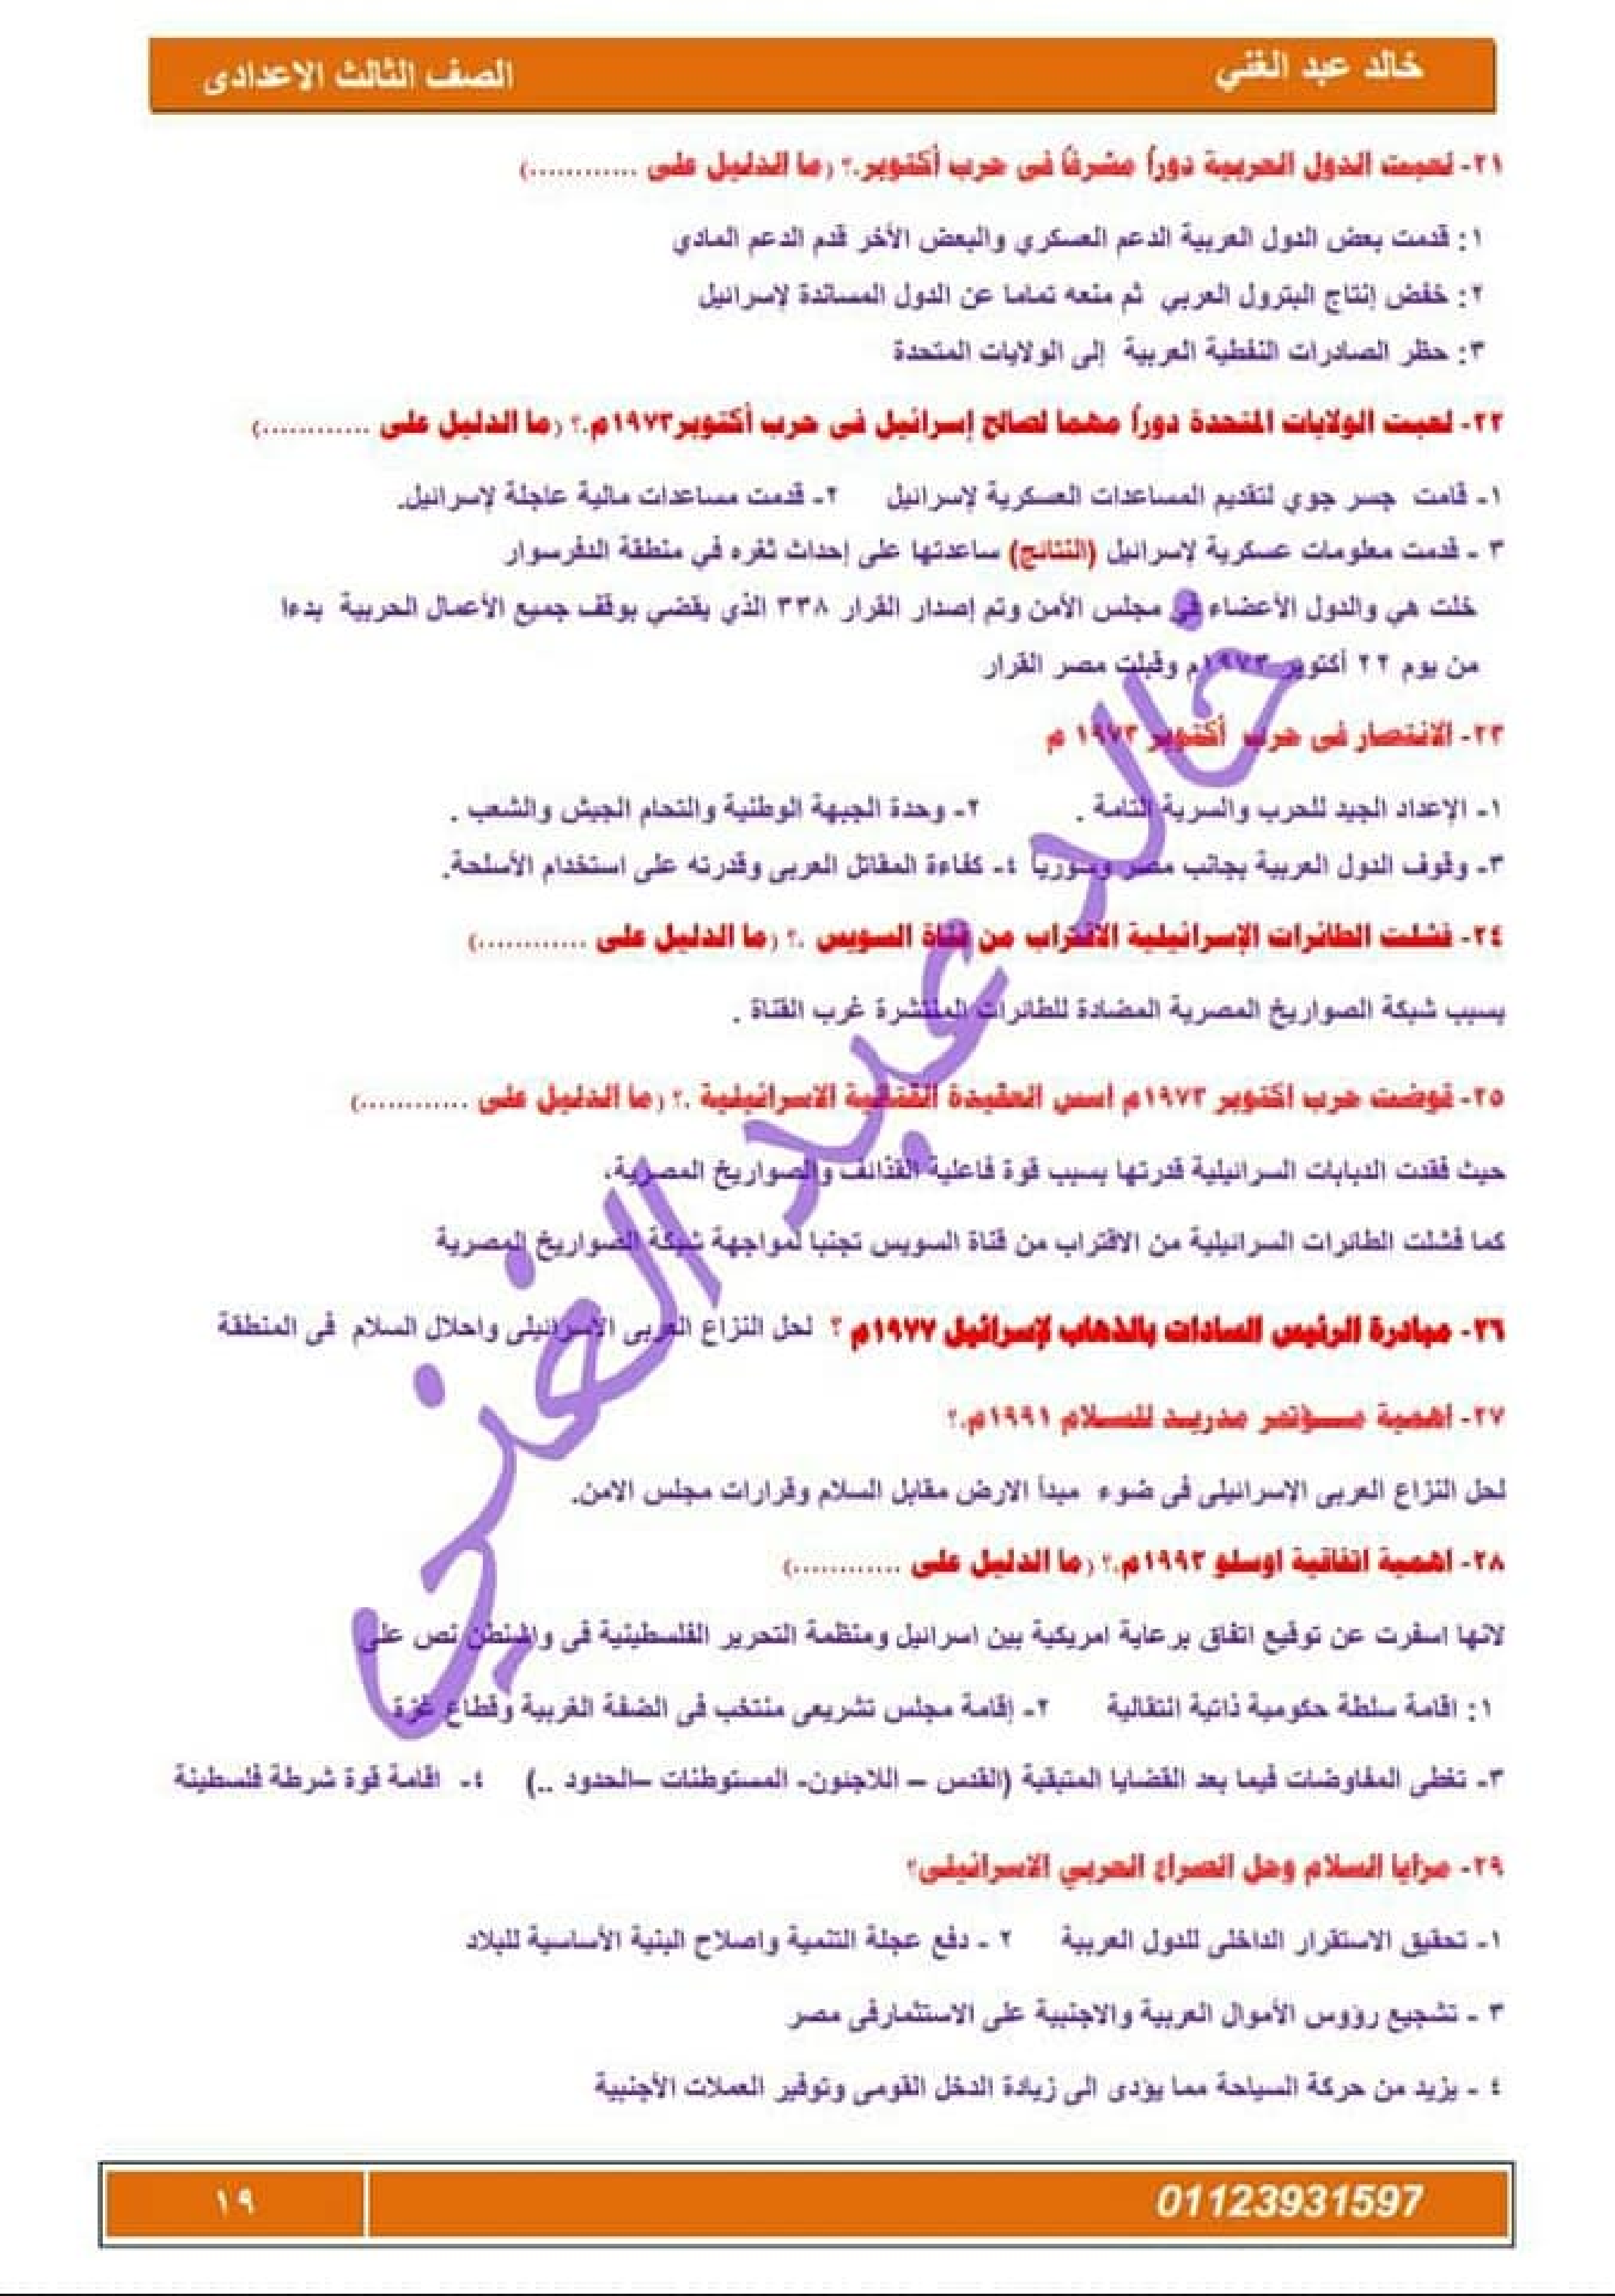 خالد عبد الغني
الصف الثالث الاعدادى
٢١- لعبت الدول العربية دوراً مشرفاً فى حرب أكتوبر.؟ (ما الدليل على ............)
١: قدمت بعض الدول العربية الدعم العسكري والبعض الأخر قدم الدعم المادي
٢: خفض إنتاج البترول العربي ثم منعه تماما عن الدول المساندة لإسرائيل
٣: حظر الصادرات النفطية العربية إلى الولايات المتحدة
٢٢- لعبت الولايات المتحدة دوراً مهما لصالح إسرائيل فى حرب أكتوبر١٩٧٣م.؟ (ما الدليل على ............)
١- قامت جسر جوي لتقديم المساعدات العسكرية لإسرائيل ٢- قدمت مساعدات مالية عاجلة لإسرائيل.
٣ - قدمت معلومات عسكرية لإسرائيل (النتائج) ساعدتها على إحداث ثغره في منطقة الدفرسوار
خلت هي والدول الأعضاء في مجلس الأمن وتم إصدار القرار ٣٣٨ الذي يقضي بوقف جميع الأعمال الحربية بدءا
من يوم ٢٢ أكتوبر ١٩٧٣م وقبلت مصر القرار
٢٣- الانتصار فى حرب أكتوبر ١٩٧٣ م
١- الإعداد الجيد للحرب والسرية التامة . ٢- وحدة الجبهة الوطنية والتحام الجيش والشعب .
٣- وقوف الدول العربية بجانب مصر وسوريا ٤- كفاءة المقاتل العربى وقدرته على استخدام الأسلحة.
٢٤- فشلت الطائرات الإسرائيلية الاقتراب من قناة السويس .؟ (ما الدليل على ............)
بسبب شبكة الصواريخ المصرية المضادة للطائرات المنتشرة غرب القناة .
٢٥- قوضت حرب اكتوبر ١٩٧٣م اسس العقيدة القتالية الاسرائيلية .؟ (ما الدليل على ............)
حيث فقدت الدبابات السرائيلية قدرتها بسبب قوة فاعلية القذائف والصواريخ المصرية،
كما فشلت الطائرات السرائيلية من الاقتراب من قناة السويس تجنبا لمواجهة شبكة الصواريخ المصرية
٢٦- مبادرة الرئيس السادات بالذهاب لإسرائيل ١٩٧٧م ؟ لحل النزاع العربى الاسرائيلى واحلال السلام فى المنطقة
٢٧- اهمية مؤتمر مدريد للسلام ١٩٩١م.؟
لحل النزاع العربى الإسرائيلى فى ضوء مبدأ الارض مقابل السلام وقرارات مجلس الامن.
٢٨- اهمية اتفاقية اوسلو ١٩٩٣م.؟ (ما الدليل على ............)
لانها اسفرت عن توقيع اتفاق برعاية امريكية بين اسرائيل ومنظمة التحرير الفلسطينية فى واشنطن نص على
١: اقامة سلطة حكومية ذاتية انتقالية ٢- إقامة مجلس تشريعى منتخب فى الضفة الغربية وقطاع غزة
٣- تغطى المفاوضات فيما بعد القضايا المتبقية (القدس – اللاجئون- المستوطنات –الحدود ..) ٤- اقامة قوة شرطة فلسطينة
٢٩- مزايا السلام وحل الصراع العربي الاسرائيلى؟
١- تحقيق الاستقرار الداخلى للدول العربية ٢ - دفع عجلة التنمية واصلاح البنية الأساسية للبلاد
٣ - تشجيع رؤوس الأموال العربية والاجنبية على الاستثمارفى مصر
٤ - يزيد من حركة السياحة مما يؤدى الى زيادة الدخل القومى وتوفير العملات الأجنبية
خالد عبد الغنى
01123931597
١٩